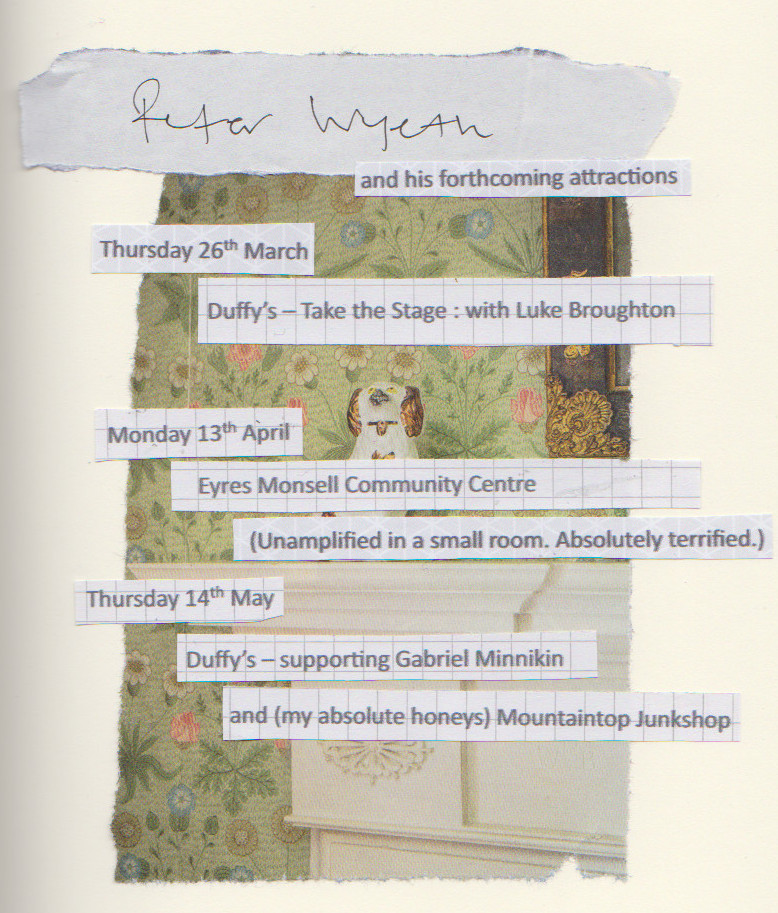 Peter Wyeth
and his forthcoming attractions
Thursday 26th March
Duffy's – Take the Stage : with Luke Broughton
Monday 13th April
Eyres Monsell Community Centre
(Unamplified in a small room. Absolutely terrified.)
Thursday 14th May
Duffy's – supporting Gabriel Minnikin
and (my absolute honeys) Mountaintop Junkshop